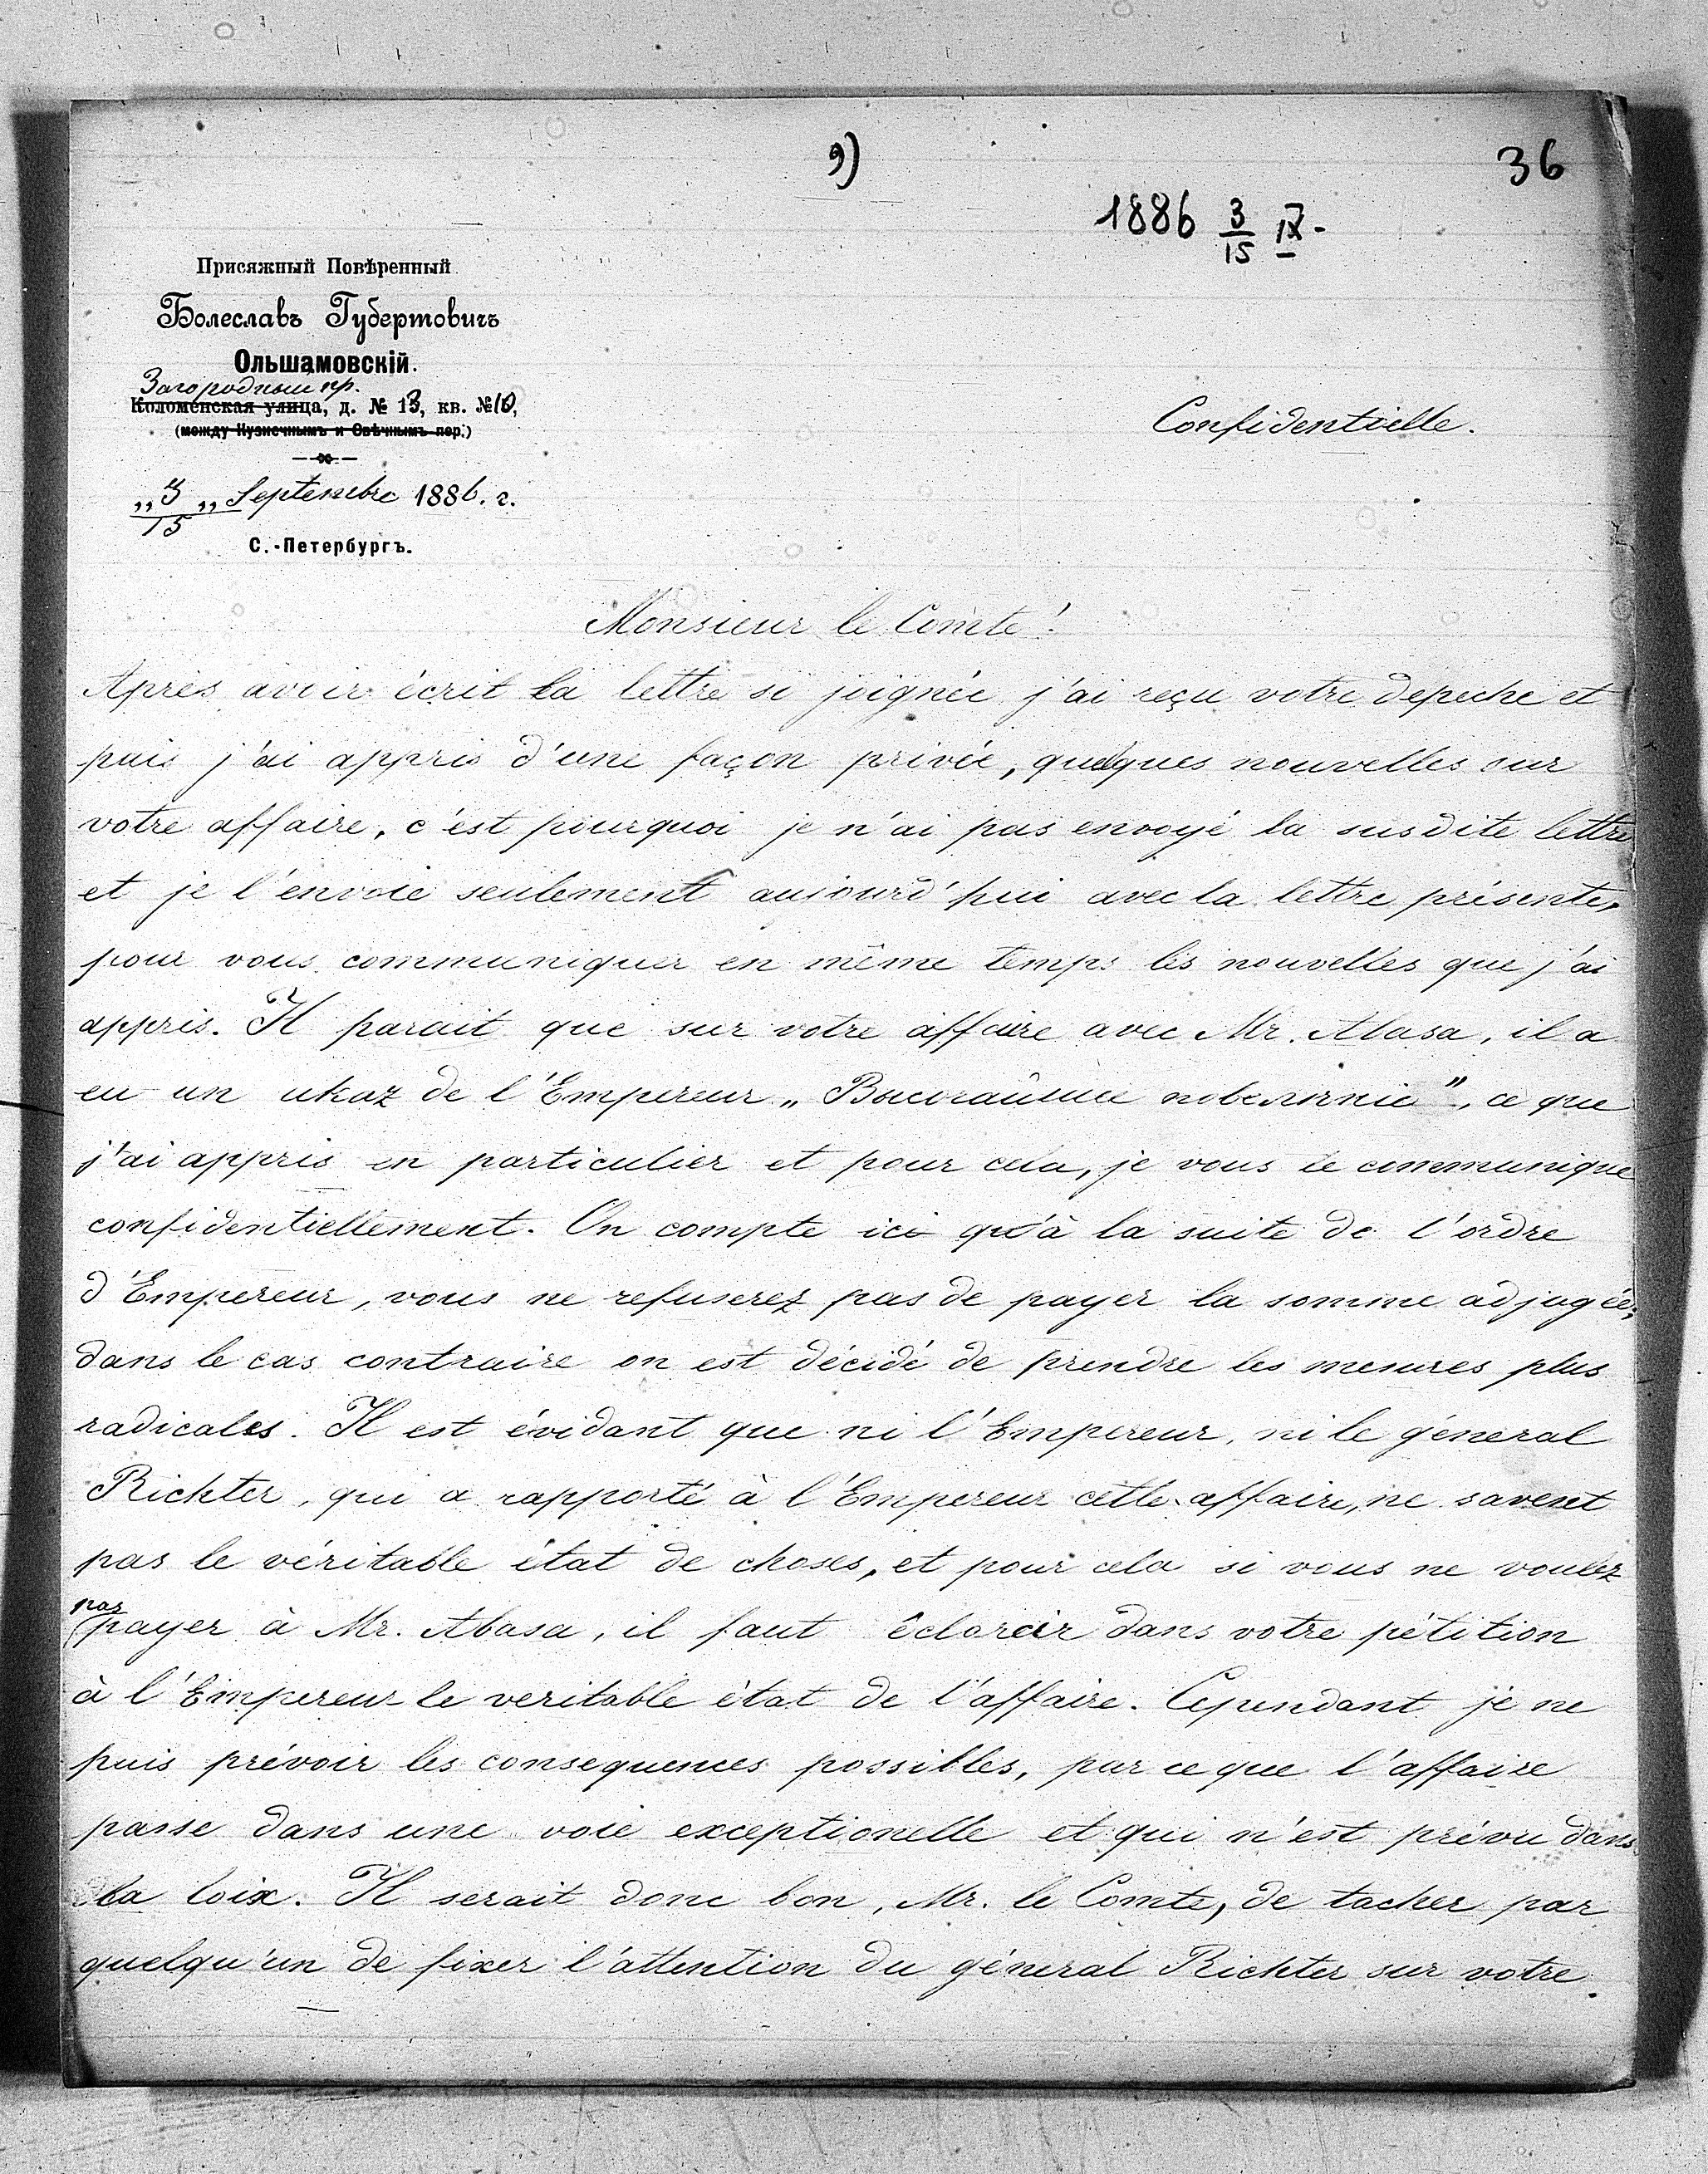 9)
36
1886 3/15 IX.-
Присяжный Повѣренный
Болеславъ Губертовичъ
Ольшамовскій.
Загородный пр.
Коломенская улица, д. № 13, кв. № 10,
(между Кузнечнымъ и Свѣчнымъ пер.)
Confidentielle.
„3/15„ Septembre 1886. г.
С.-Петербургъ.
Monsieur le Comte!
Après avoir écrit la lettre si joignée j'ai reçu votre depeche et
puis j'ai appris d'une façon privée, quelques nouvelles sur
votre affaire, c'est pourquoi je n'ai pas envoyé la susdite lettre
et je l'envoie seulement aujourd'hui avec la lettre présente,
pour vous communiquer en même temps les nouvelles que j'ai
appris. Il parait que sur votre affaire avec Mr. Abasa, il a
eu un ukaz de l'Empereur „Высочайшее повелѣніе", ce que
j'ai appris en particulier et pour cela, je vous le communique
confidentiellement. On compte ici qu'à la suite de l'ordre
d'Empereur, vous ne refuserez pas de payer la somme adjugée;
dans le cas contraire on est décidé de prendre les mesures plus
radicales. Il est évidant que ni l'Empereur, ni le géneral
Richter, qui a rapporté à l'Empereur cette affaire, ne savent
pas le véritable état de choses, et pour cela si vous ne voulez
pas
payer à Mr. Abasa, il faut éclarcir dans votre pétition
à l'Empereur le veritable état de l'affaire. Cependant je ne
puis prévoir les consequences possibles, par ce que l'affaire
passe dans une voie exceptionelle et qui n'est prévu dans
la loix. Il serait donc bon, Mr. le Comte, de tacher par
quelqu'un de fixer l'attention du géneral Richter sur votre